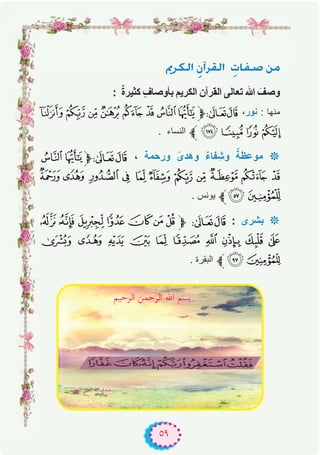 من صفاتِ القرآنِ الكريم
وصف الله تعالى القرآن الكريم بأوصافٍ كثيرةً :
منها : نور، قَالَ تَعَالَىٰ: ﴿ يَٰٓأَيُّهَا ٱلنَّاسُ قَدْ جَآءَكُم بُرْهَٰنٌ مِّن رَّبِّكُمْ وَأَنزَلْنَآ
إِلَيْكُمْ نُورًا مُّبِينًا ١٧٤ ﴾ النساء .
موعظةً وشفاءً وهدىً ورحمة ، قَالَ تَعَالَىٰ: ﴿ يَٰٓأَيُّهَا ٱلنَّاسُ
قَدْ جَآءَتْكُم مَّوْعِظَةٌ مِّن رَّبِّكُمْ وَشِفَآءٌ لِّمَا فِى ٱلصُّدُورِ وَهُدًى وَرَحْمَةٌ
لِّلْمُؤْمِنِينَ ٥٧ ﴾ يونس .
بشرى : قَالَ تَعَالَىٰ: ﴿ قُلْ مَن كَانَ عَدُوًّا لِّجِبْرِيلَ فَإِنَّهُۥ نَزَّلَهُۥ
عَلَىٰ قَلْبِكَ بِإِذْنِ ٱللَّهِ مُصَدِّقًا لِّمَا بَيْنَ يَدَيْهِ وَهُدًى وَبُشْرَىٰ
لِلْمُؤْمِنِينَ ٩٧ ﴾ البقرة .
بسم الله الرحمن الرحيم
فَقُلْتُ ٱسْتَغْفِرُوا۟ رَبَّكُمْ إِنَّهُۥ كَانَ غَفَّارًا
٥٩